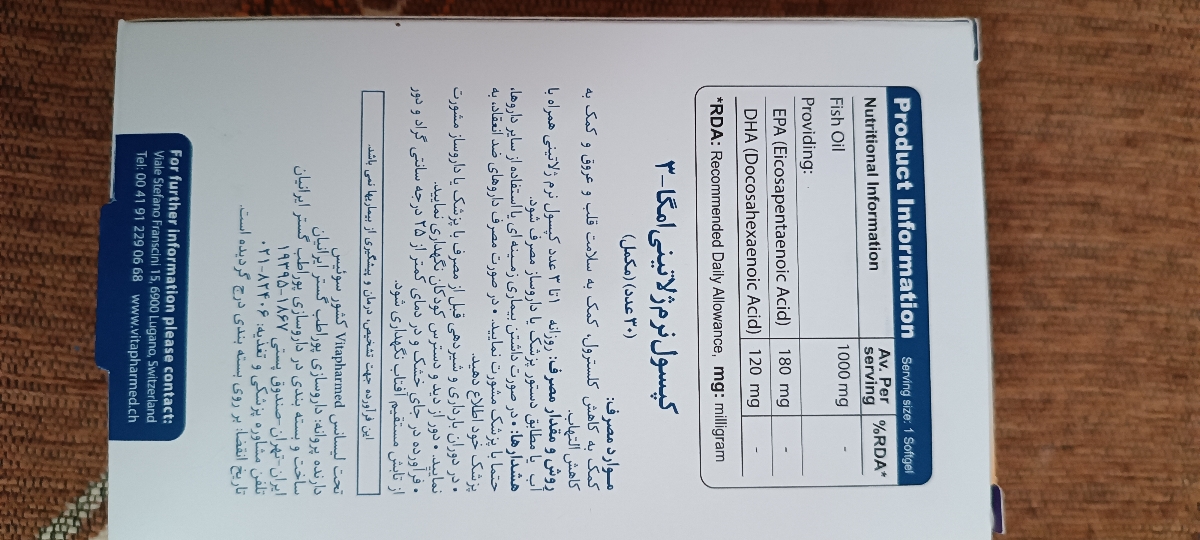 Product Information Serving size: 1 Softgel
Nutritional Information Av. Per serving %RDA*
Fish Oil 1000 mg -
Providing:
EPA (Eicosapentaenoic Acid) 180 mg -
DHA (Docosahexaenoic Acid) 120 mg -
*RDA: Recommended Daily Allowance, mg: milligram
کپسول نرم ژلاتینی امگا-۳
(۳۰ عدد) (مکمل)
موارد مصرف:
کمک به کاهش کلسترول، کمک به سلامت قلب و عروق و کمک به
کاهش التهاب.
روش و مقدار مصرف: روزانه ۱ تا ۳ عدد کپسول نرم ژلاتینی همراه با
آب یا مطابق دستور پزشک یا داروساز مصرف شود.
هشدارها: • در صورت داشتن بیماری زمینه ای یا استفاده از سایر داروها،
حتما با پزشک مشورت نمایید. • در صورت مصرف داروهای ضد انعقاد، به
پزشک خود اطلاع دهید.
• در دوران بارداری و شیردهی قبل از مصرف با پزشک یا داروساز مشورت
نمایید. • دور از دید و دسترس کودکان نگهداری نمایید.
• فرآورده در جای خشک و در دمای کمتر از ۲۵ درجه سانتی گراد و دور
از تابش مستقیم آفتاب نگهداری شود.
این فرآورده جهت تشخیص، درمان و پیشگیری از بیماریها نمی باشد.
تحت لیسانس Vitapharmed کشور سوئیس
دارنده پروانه: داروسازی یوراطب گستر ایرانیان
ساخت و بسته بندی در داروسازی یوراطب گستر ایرانیان
ایران-تهران-صندوق پستی ۱۸۶۷-۱۹۳۹۵
تلفن مشاوره پزشکی و تغذیه: ۸۲۴۰۶-۰۲۱
تاریخ انقضا: بر روی بسته بندی درج گردیده است.
For further information please contact:
Viale Stefano Franscini 15, 6900 Lugano, Switzerland
Tel: 00 41 91 229 06 68 www.vitapharmed.ch